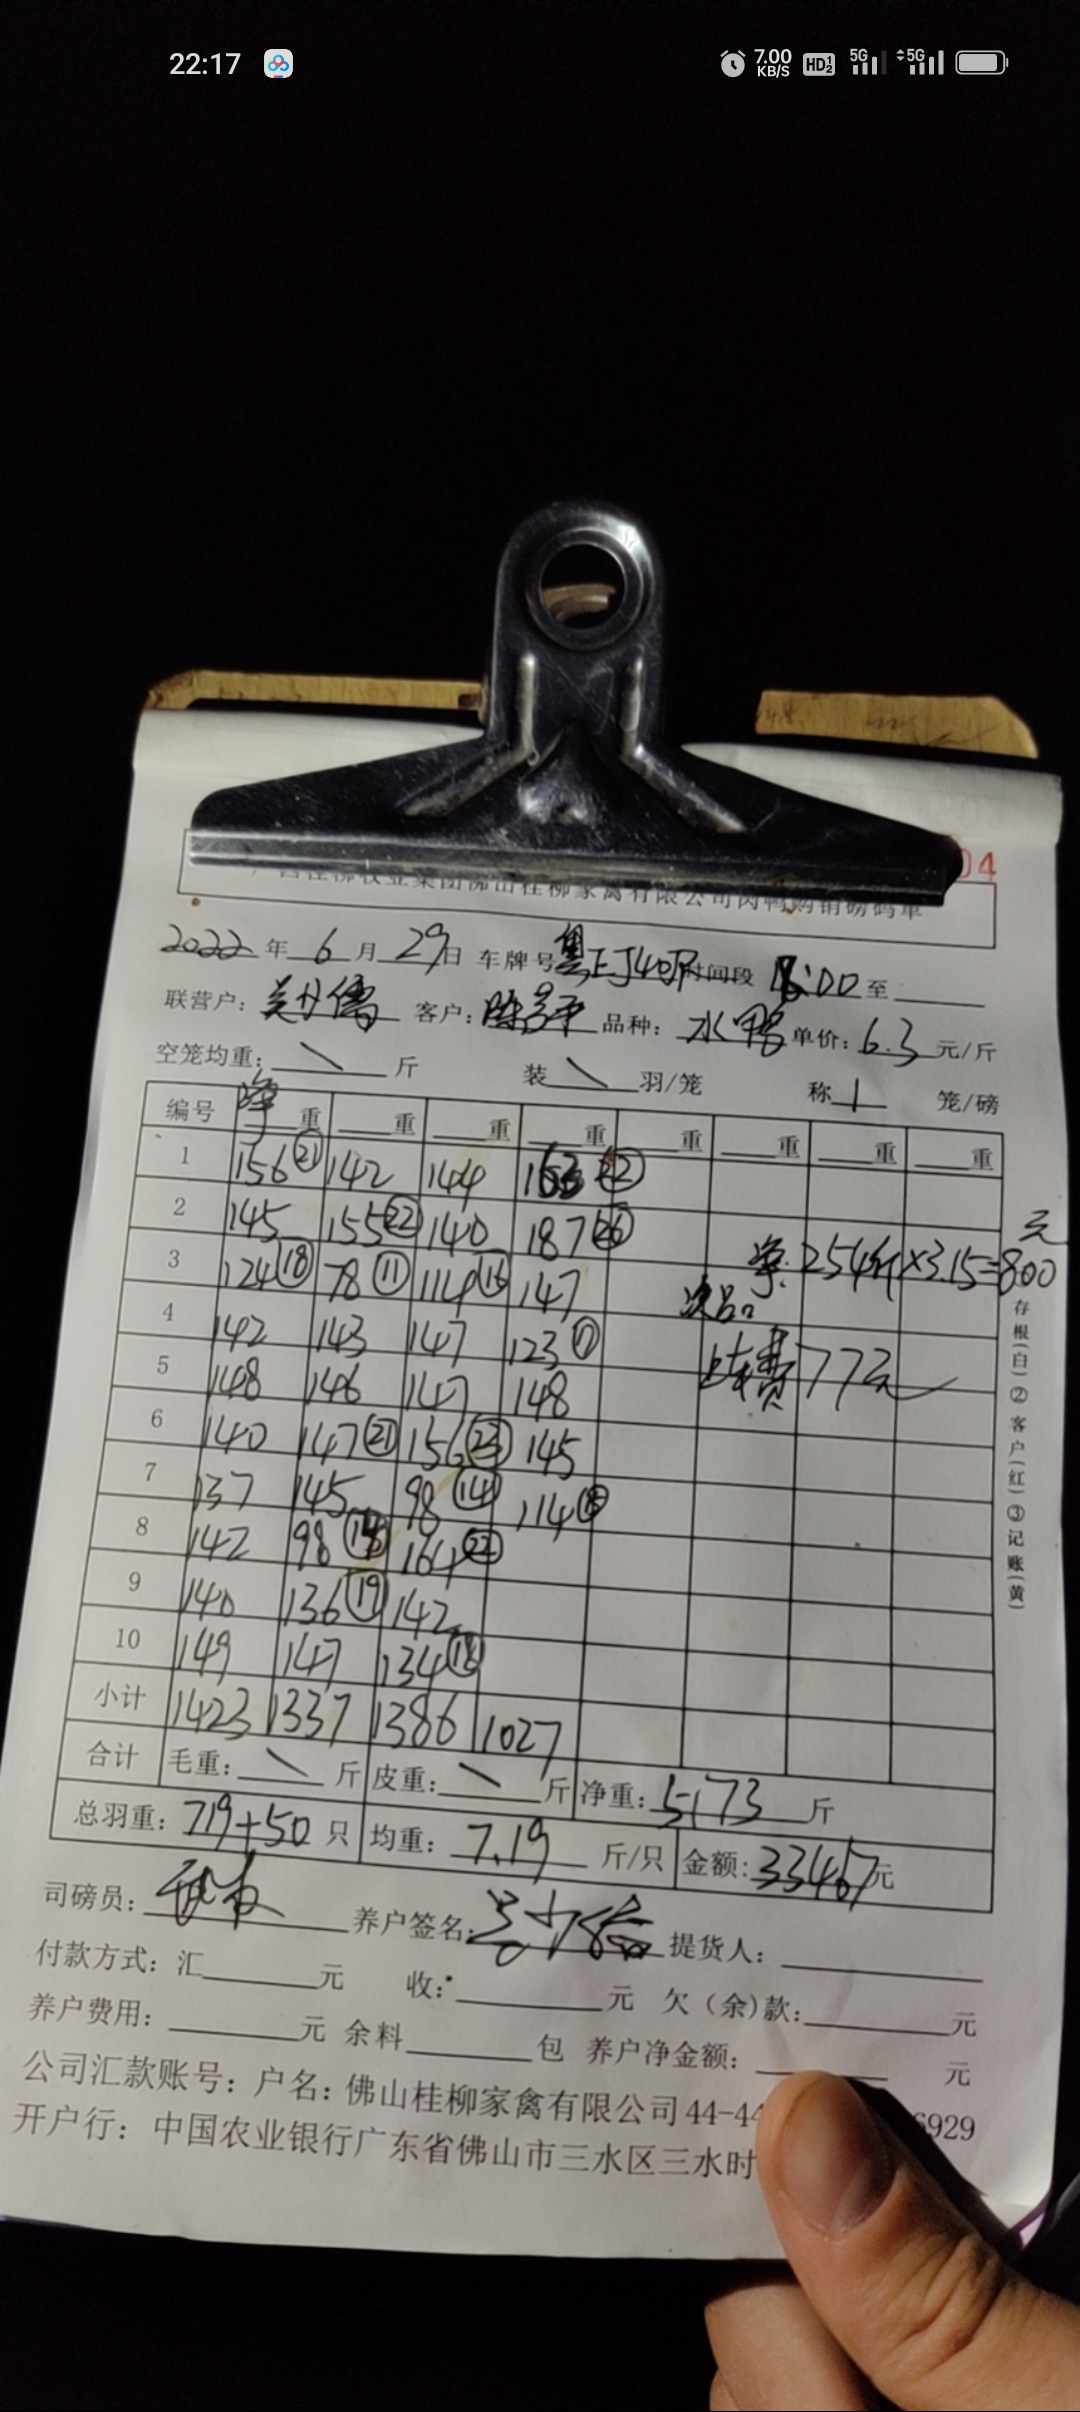 22:17 7.00 KB/S HD 5G 5G
04
广西桂柳牧业集团佛山桂柳家禽有限公司肉鸭购销磅码单
2022年6月29日 车牌号 时间段 :00至
联营户: 客户: 品种:水鸭 单价:6.3元/斤
空笼均重:\斤 装\羽/笼 称1笼/磅
编号 净重 重 重 重 重 重 重 重
1 156㉑ 142 144 163㉒
2 145 155㉒ 140 187㉖
元
净:254斤×3.15=800
3 124⑱ 78⑪ 114⑯ 147
次品
4 142 143 147 123⑰
5 148 146 147 148
费77元
6 140 147㉑ 156㉓ 145
7 137 145 98⑭ 114⑱
8 142 98 164㉒
9 140 136⑲ 142
10 149 147 134⑱
小计 1423 1337 1386 1027
合计 毛重:\斤 皮重:\斤 净重:5173斤
总羽重:719+50只 均重:7.19斤/只 金额:33467元
司磅员: 养户签名: 提货人:
付款方式:汇 元 收: 元 欠(余)款: 元
养户费用: 元 余料 包 养户净金额: 元
公司汇款账号:户名:佛山桂柳家禽有限公司 44-44 6929
开户行:中国农业银行广东省佛山市三水区三水时
存根(白)②客户(红)③记账(黄)